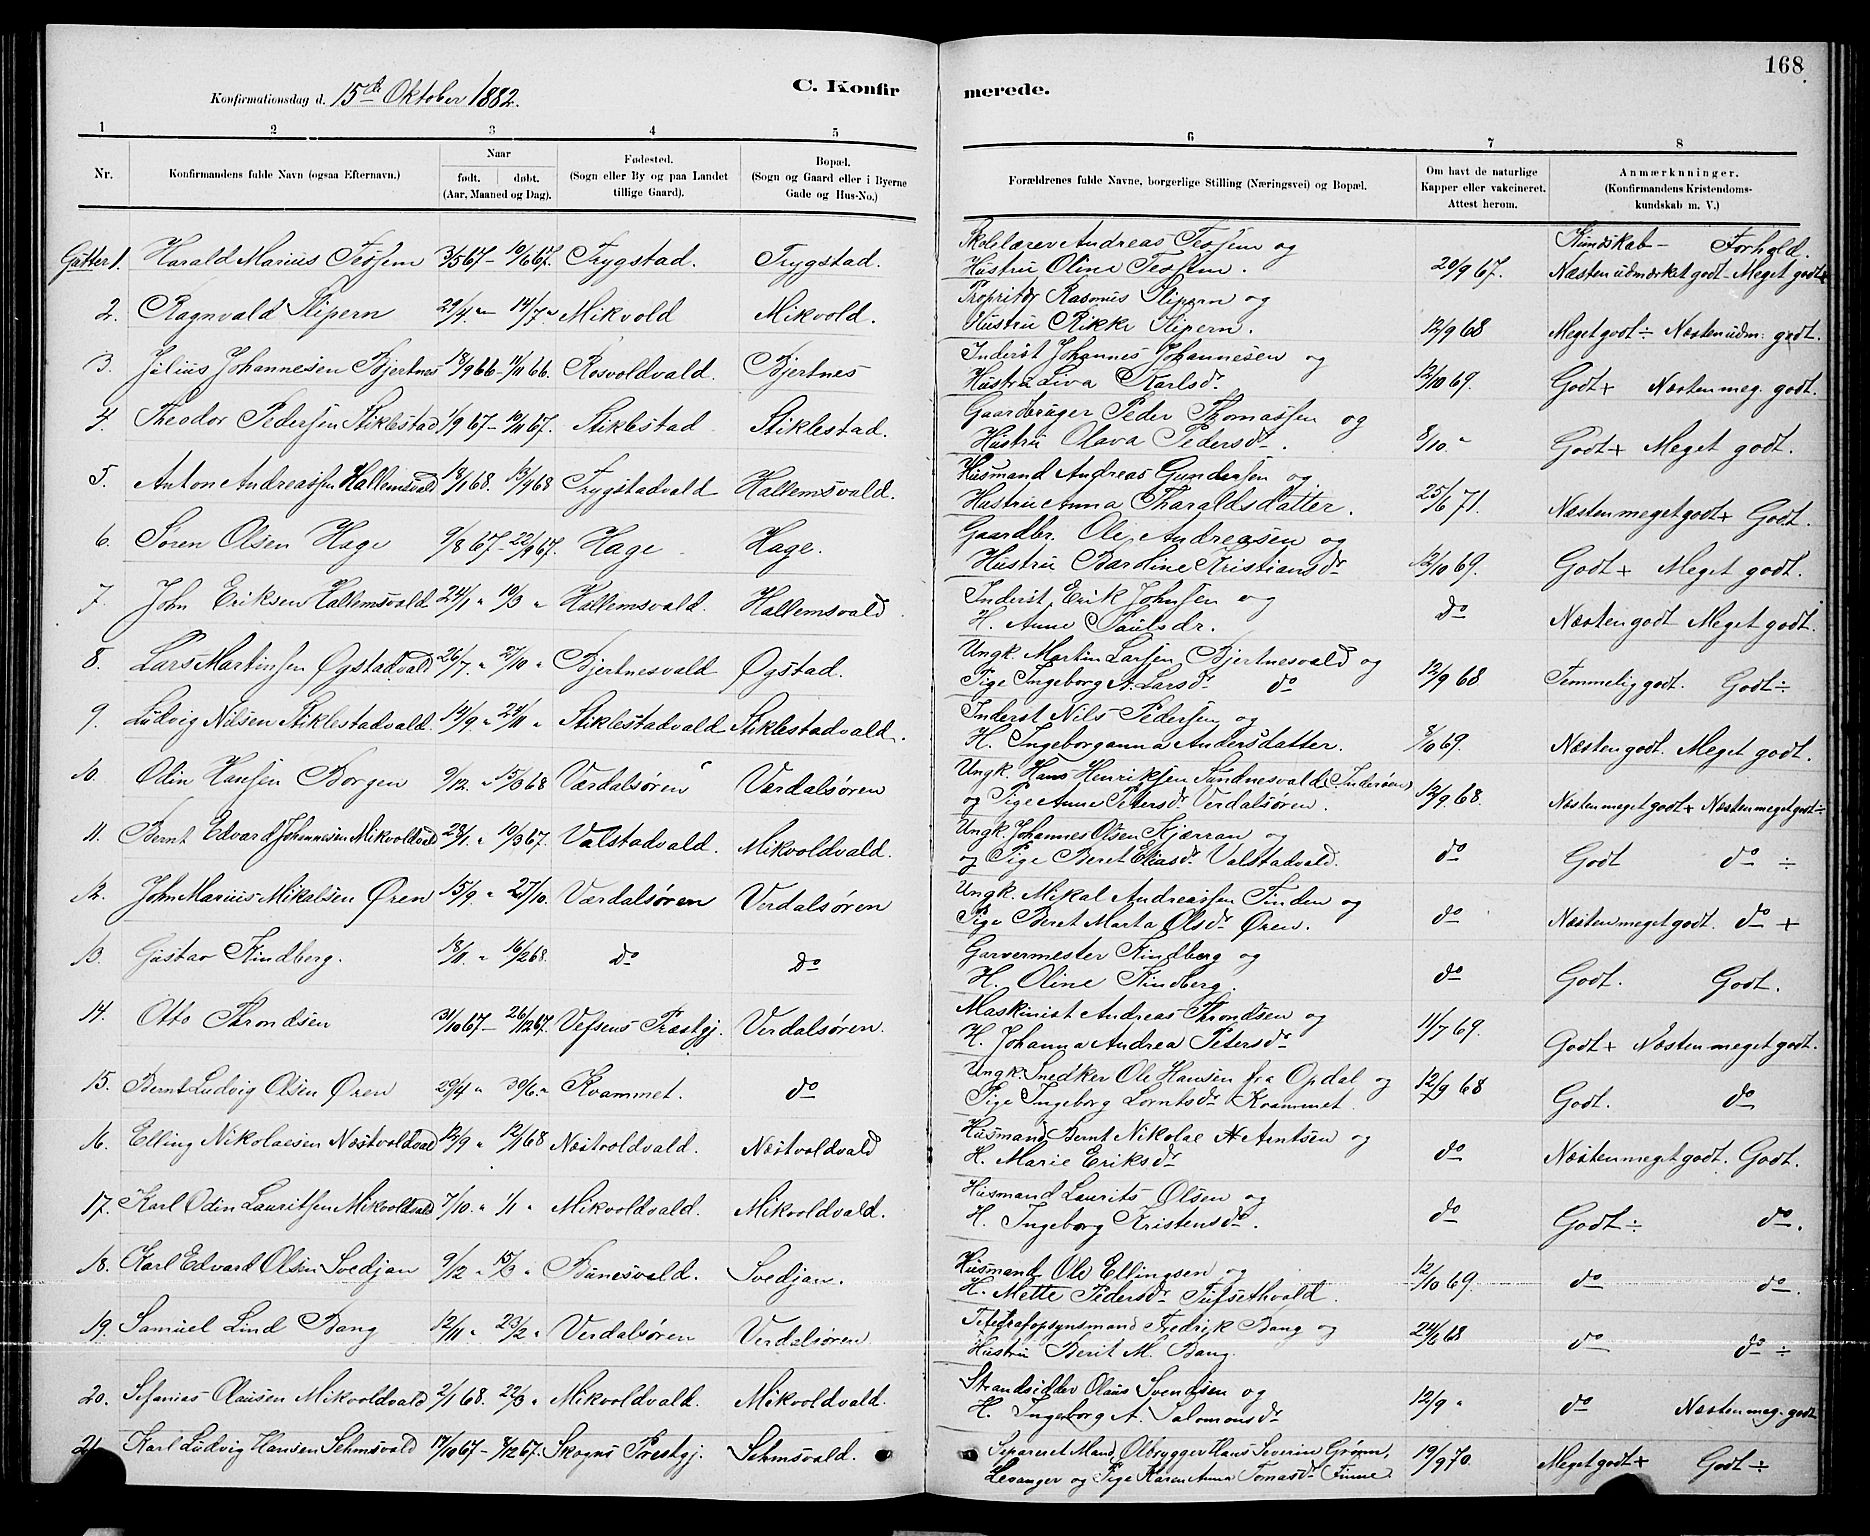 168
Konfirmationsdag d. 15de Oktober 1882.
C. Konfirmerede.
1 2 3 4 5 6 7 8
Nr.
Konfirmandens fulde Navn (ogsaa Efternavn.)
Naar
født. døbt.
(Aar, Maaned og Dag).
Fødested.
(Sogn eller By og paa Landet
tillige Gaard).
Bopæl.
(Sogn og Gaard eller i Byerne
Gade og Hus-No.)
Forældrenes fulde Navne, borgerlige Stilling (Næringsvei) og Bopæl.
Om havt de naturlige
Kapper eller vakcineret.
Attest herom.
Anmærknninger.
(Konfirmandens Kristendoms-
kundskab m. V.)
Kundskab - Forhold.
Gutter 1. Harald Marius 3/5 67 - 10/6 67. Trygstad. Trygstad. Skolelærer Andreas og
Hustru Oline 20/9 67. Næsten udmærket godt - Meget godt +
2. Ragnvald 29/4 " 14/7 " Mikvold Mikvold. Propritær Rasmus og
Hustru Rikke 12/9 68 Meget godt ÷ Næsten udm. godt.
3. Julius Johannesen Bjertnes 18/9 66 - 1/11 66. Rosvoldvald. Bjertnes Inderst Johannes Johannesen og
Hustru Karlsdr. 12/10 69. Godt + Næsten meg. godt.
4. Theodor Pedersen Stiklestad 1/9 67 - 10/11 67. Stiklestad Stiklestad. Gaardbruger Peder Thomassen og
Hustru Olava Pedersdr. 8/10 " Godt + Meget godt.
5. Anton Andreassen Hallemsvald 13/1 68. 13/9 68 Trygstadvald Hallemsvald. Husmand Andreas Gundersen og
Hustru Anna Tharaldsdatter. 25/6 71. Næsten meget godt + Godt.
6. Soren Olsen Hage 9/8 67 - 22/9 67. Hage Hage. Gaardbr. Ole Andreasen og
Hustru Bardine Kristiansdr 12/10 69. Godt + Meget godt.
7. John Eriksen Hallemsvald 24/1 " 10/3 " Hallemsvald. Hallemsvald Inderst Erik Johnsen og
H. Anne Paulsdr. do Næsten godt Meget godt.
8. Lars Martinsen Øgstadvald 26/7. " 27/10 " Bjertnesvald Øgstad. Ungk. Martin Larsen Bjertnesvald og
Pige Ingeborg A. Larsdr do 12/9 68 Temmelig godt. Godt ÷
9. Ludvig Nilsen Stiklestadvald. 14/9 " 24/11 " Stiklestadvald Stiklestadvald. Inderst Nils Pedersen og
H. Ingeborganna Andersdatter. 8/10 69. Næsten godt. Meget godt.
10. Odin Hansen Borgen 9/12. " 15/3 68 Værdalsøren Værdalsøren Ungk. Hans Henriksen Sundnesvald (Inderøen)
og Pige Anne Petersdr Verdalsøren. 12/9 68. Næsten meget godt + Næsten meget godt ÷
11. Bernt Edvard Johannesen Mikvoldvald 28/1 " 10/3 67. Valstadvald. Mikvoldvald. Ungk. Johannes Olsen Kjærran og
og Pige Beret Eliasdr Valstadvald. do Godt do ÷
12. John Marius Mikalsen Øren 15/9 " 27/10. Værdalsøren Verdalsøren Ungk. Mikal Andreassen Tinden og
Pige Beret Marta Olsdr Øren. do Næsten meget godt. do +
13. Gustav Kindberg. 18/11. " 16/2 68. do do Garvermester Kindberg og
H. Oline Kindberg. do Godt. Godt.
14. Otto Throndsen 31/10 67 - 26/12 67. Vefsens Præstgj. Verdalsøren. Maskinist Andreas Throndsen og
H. Johanna Andrea Petersdr 11/7 69. Godt + Næsten meget godt.
15. Bernt Ludvig Olsen Øren 29/4 " 30/6. " Kvammet. do Ungk. Snedker Ole Hansen fra Opdal og
Pige Ingeborg Lorntsdr Kvammet. 12/9 68 Godt. do
16. Elling Nikolaesen Næstvoldvald 12/9 " 12/1 68 Næstvoldvald. Næstvoldvald Husmand Bernt Nikolae Arntsen og
H. Marie Eriksdr do Næsten meget godt. Godt.
17. Karl Odin Lauritsen Mikvoldvald 7/10. " 1/1 " Mikvoldvald. Mikvoldvald. Husmand Laurits Olsen og
H. Ingeborg Kristensdr. do Godt ÷ do.
18. Karl Edvard Olsen Svedjan 9/12 " 15/3 " Bunesvald. Svedjan. Husmand Ole Ellingsen og
H. Mette Pedersdr Tufsethvald. 12/10 69. do do.
19. Samuel Lind Bang 12/11 " 23/2 " Verdalsøren Verdalsøren Telegrafopsynsmand Fredrik Bang og
Hustru Berit M. Bang. 24/6 68 do do ÷
20. Sefanias Olausen Mikvoldvald 2/1 68. 22/3 " Mikvoldvald. Mikvoldvald. Strandsidder Olaus Svendsen og
H. Ingeborg A. Salomonsdr 12/9 " do Næsten meg. godt
21. Karl Ludvig Hansen Sehmsvald 17/10 67 - 8/12 67. Skogns Præstgj. Sehmsvald. Separeret Mand, Ølbrygger Hans Severin Grønn,
Levanger og Pige Karen Anna Tomasdr Finne 19/9 70. Meget godt + Godt ÷